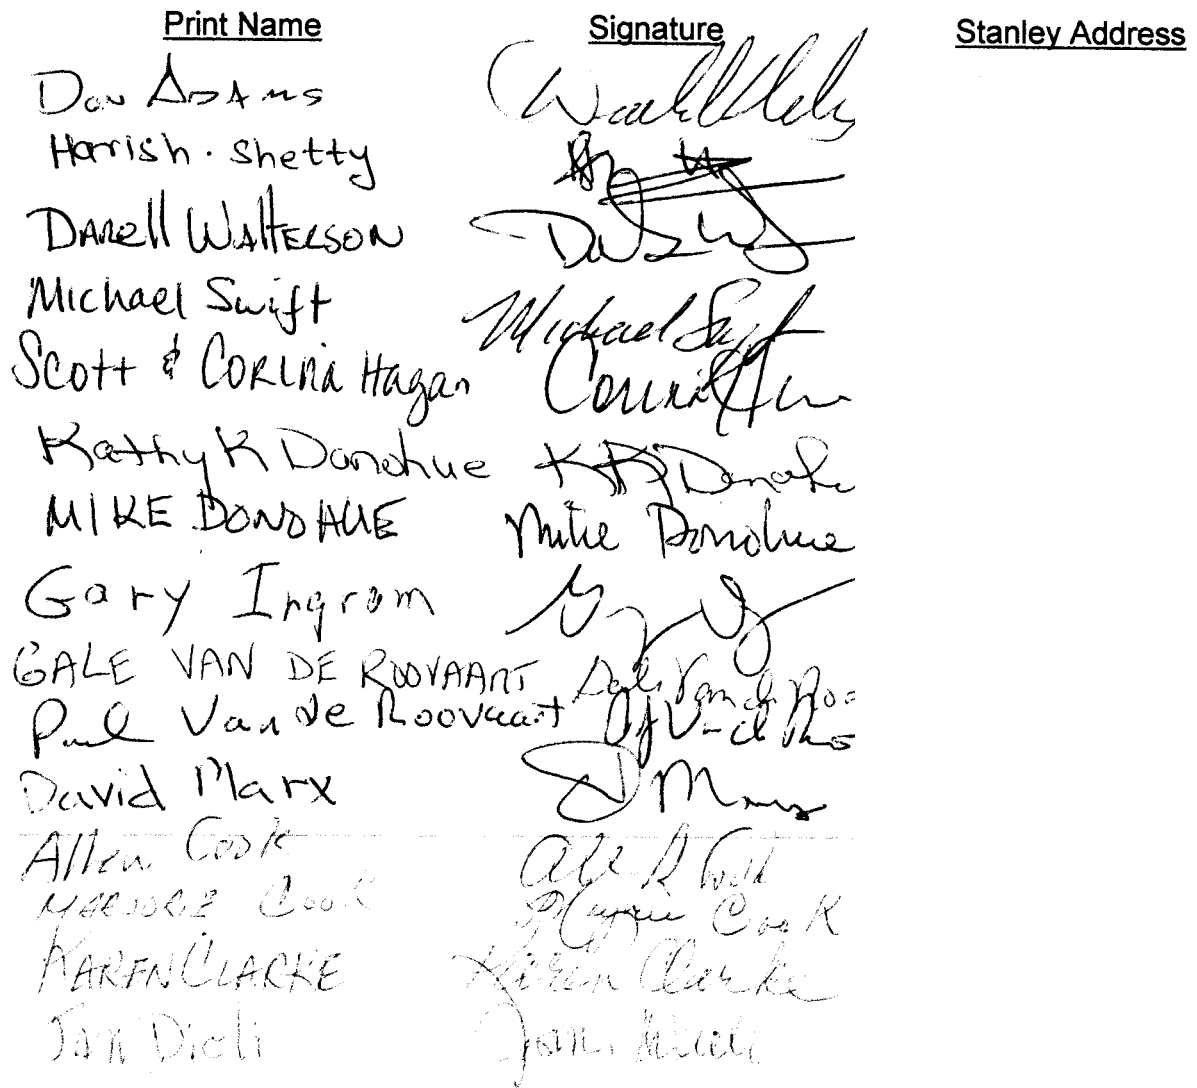 Print Name Signature Stanley Address
Don Adams
Harrish. Shetty
Darell Walterson
Michael Swift Michael Swift
Scott & Corina Hagan Corina
Kathy K Donohue KK Donohue
MIKE DONOHUE Mike Donohue
Gary Ingrom
GALE VAN DE ROOVAART Gale Van de Roo
Paul Van de Roovaart
David Marx D Marx
Allen Cook
MARJORIE COOK Cook
KAREN CLARKE Karen Clarke
Jan Dieli Jan